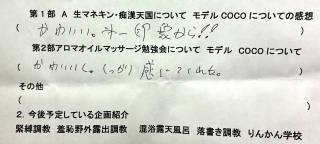 第1部 A 生マネキン・痴漢天国について モデル COCO についての感想
( かわいい。第一印象から!!
第2部アロマオイルマッサージ勉強会について モデル COCO について
( かわいく。しっかり 感じてくれた。
その他
(
2. 今後予定している企画紹介
緊縛調教 羞恥野外露出調教 混浴露天風呂 落書き調教 りんかん学校